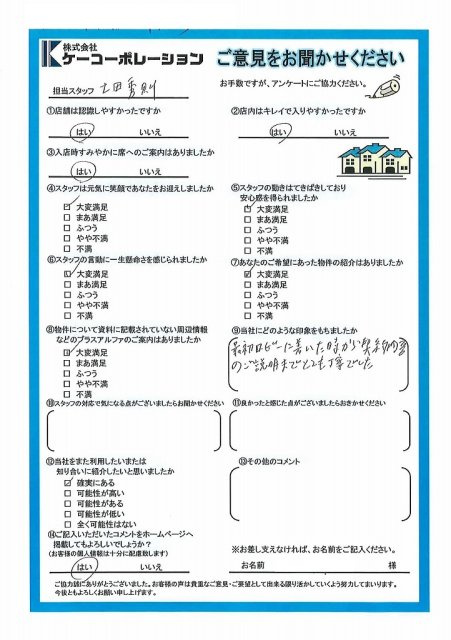 株式会社
ケーコーポレーション
ご意見をお聞かせください
お手数ですが、アンケートにご協力ください。
担当スタッフ
①店舗は認識しやすかったですか
はい いいえ
②店内はキレイで入りやすかったですか
はい いいえ
③入店時すみやかに席へのご案内はありましたか
はい いいえ
④スタッフは元気に笑顔であなたをお迎えしましたか
大変満足
まあ満足
ふつう
やや不満
不満
⑤スタッフの動きはてきぱきしており
安心感を得られましたか
大変満足
まあ満足
ふつう
やや不満
不満
⑥スタッフの言動に一生懸命さを感じられましたか
大変満足
まあ満足
ふつう
やや不満
不満
⑦あなたのご希望にあった物件の紹介はありましたか
大変満足
まあ満足
ふつう
やや不満
不満
⑧物件について資料に記載されていない周辺情報
などのプラスアルファのご案内はありましたか
大変満足
まあ満足
ふつう
やや不満
不満
⑨当社にどのような印象をもちましたか
最初ロビーに着いた時から契約内容
のご説明までとても丁寧でした
⑩スタッフの対応で気になる点がございましたらお聞かせください
⑪良かったと感じた点がございましたらおきかせください
⑫当社をまた利用したいまたは
知り合いに紹介したいと思いましたか
確実にある
可能性が高い
可能性がある
可能性が低い
全く可能性はない
⑬その他のコメント
⑭ご記入いただいたコメントをホームページへ
掲載してもよろしいでしょうか？
（お客様の個人情報は十分に配慮致します）
はい いいえ
※お差し支えなければ、お名前をご記入ください。
お名前 様
ご協力誠にありがとうございました。お客様の声は貴重なご意見・ご要望として出来る限り活かしていくよう努力してまいります。
今後ともよろしくお願い申し上げます。